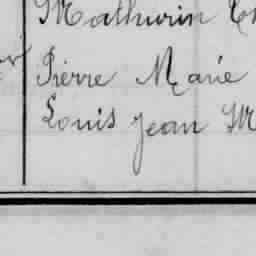 Mathurin
Pierre Marie
Louis Jean M